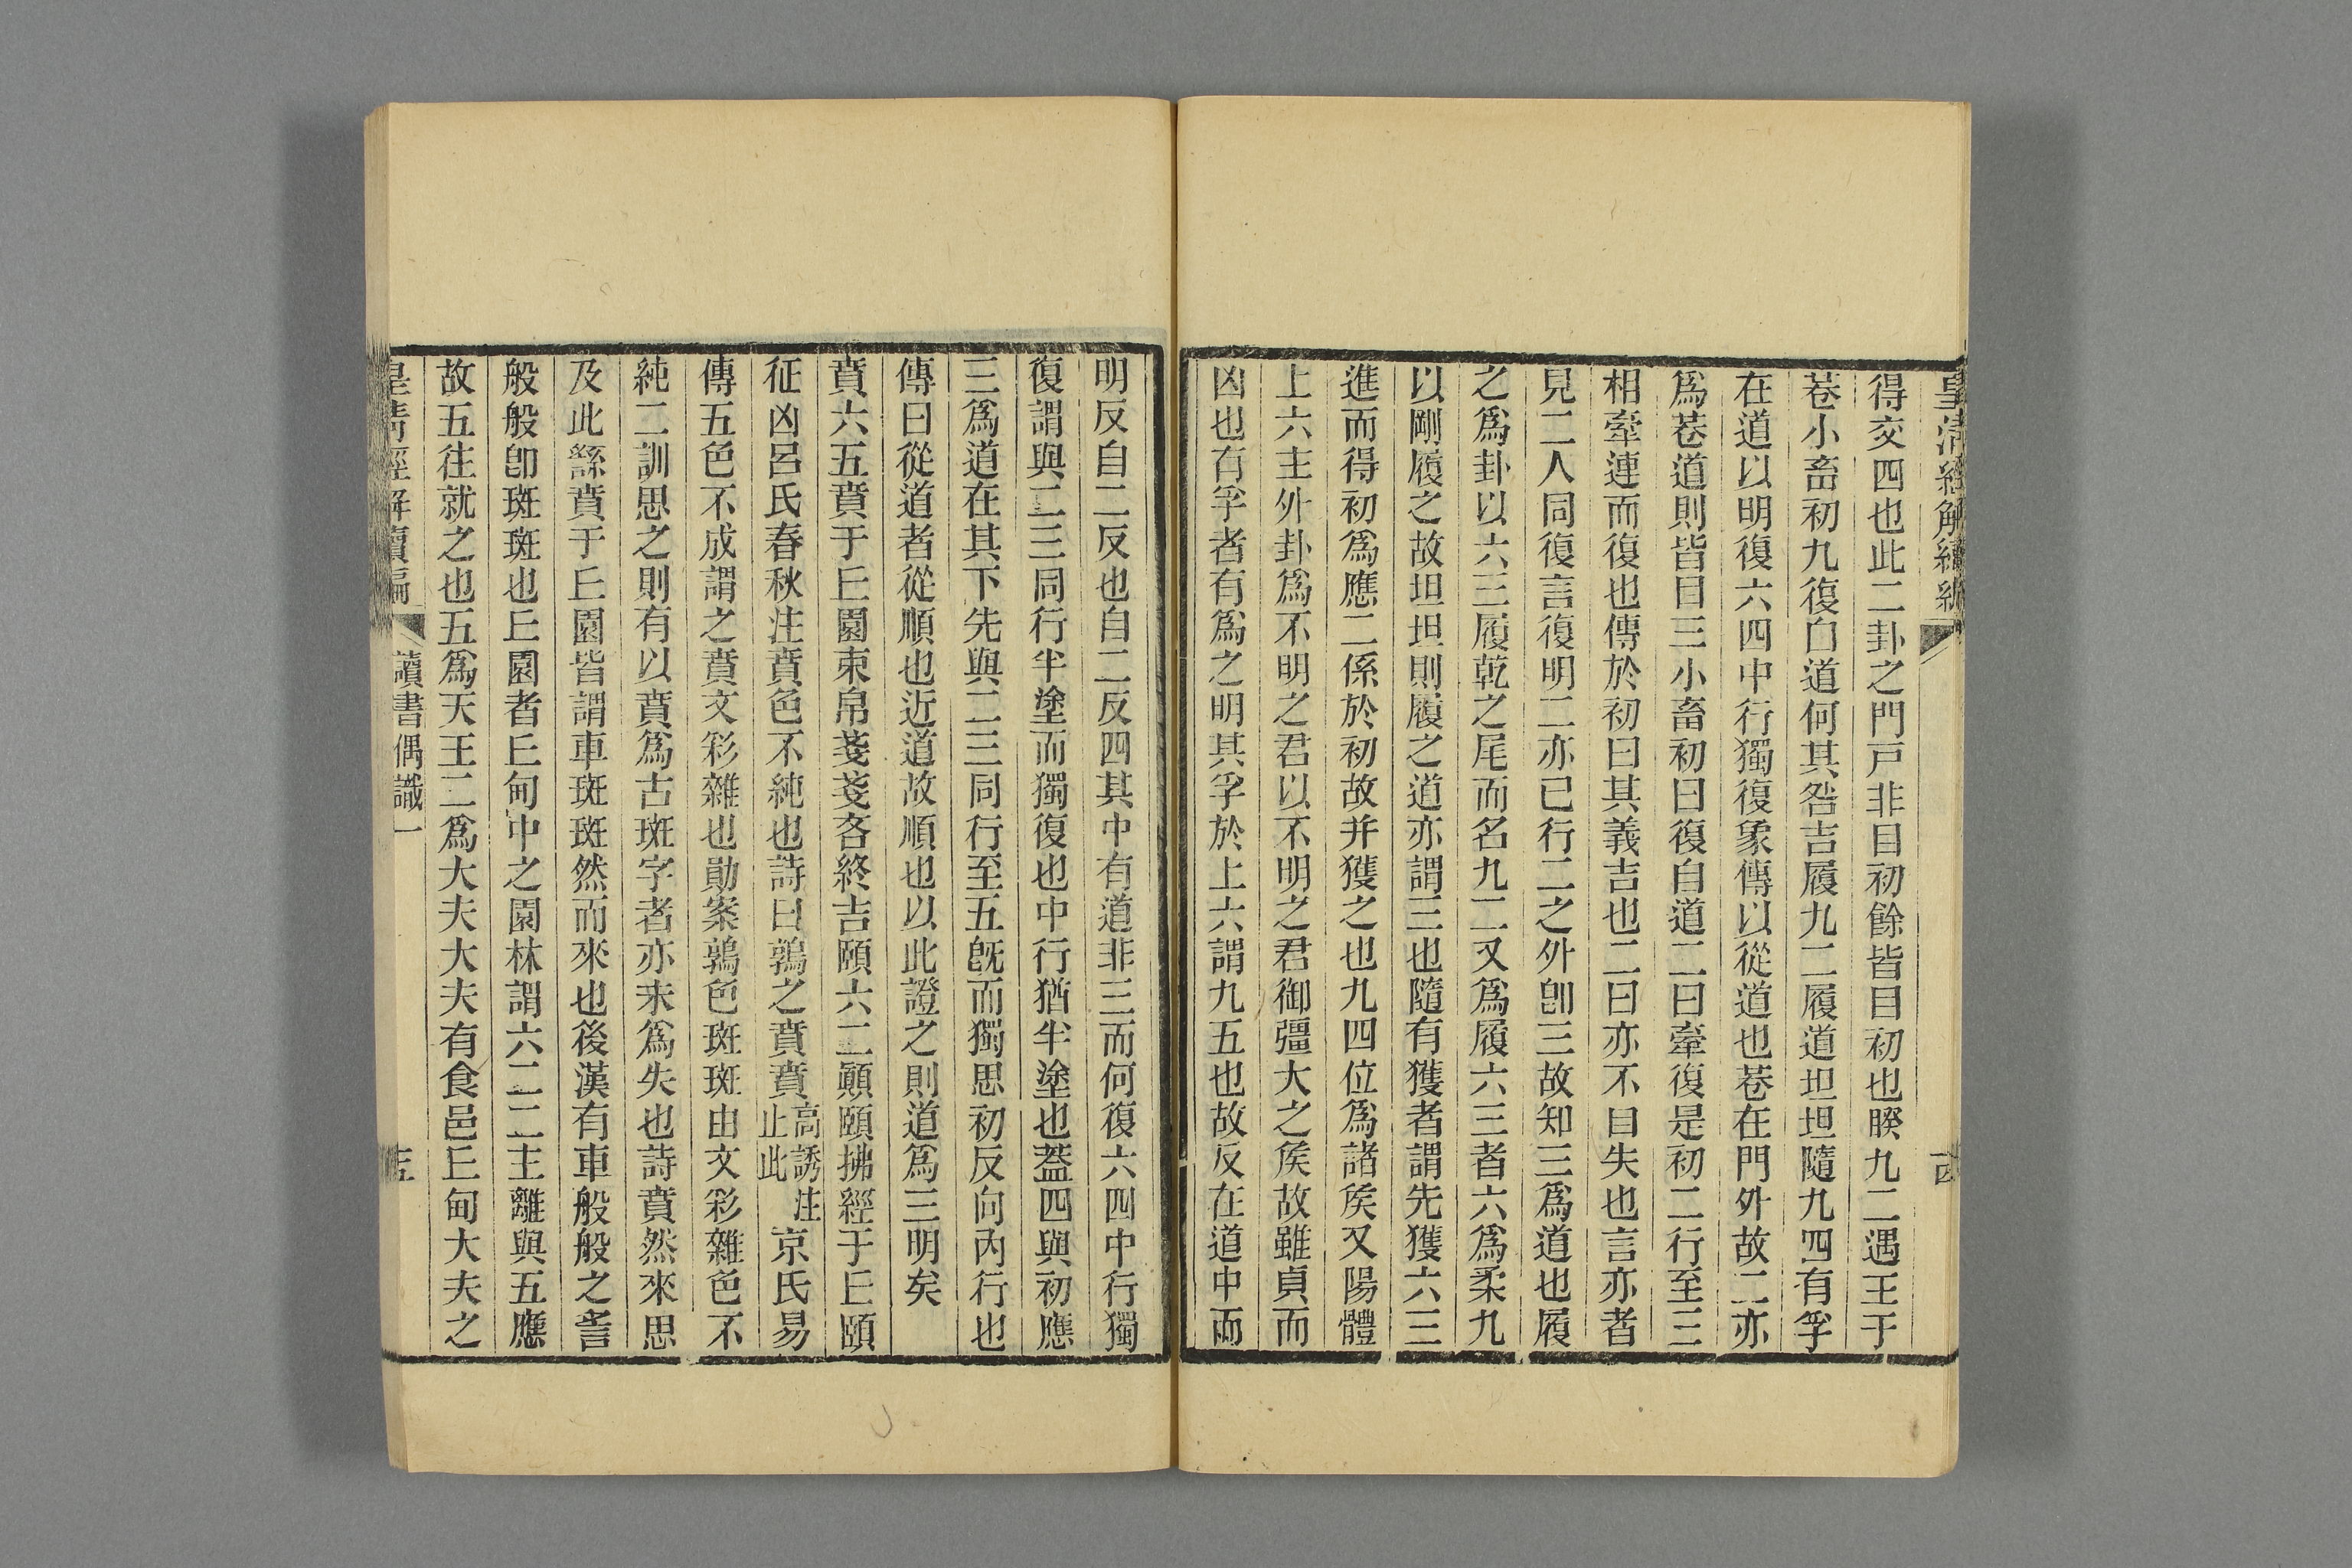 皇清經解續編
得交四也此二卦之門戸非目初餘皆目初也睽九二遇王于
巷小畜初九復自道何其咎吉履九二履道坦坦隨九四有孚
在道以明復六四中行獨復象傳以從道也巷在門外故二亦
爲巷道則皆目三小畜初曰復自道二曰牽復是初二行至三
相牽連而復也傳於初曰其義吉也二曰亦不自失也言亦者
見二人同復言復明二亦已行二之外卽三故知三爲道也履
之爲卦以六三履乾之尾而名九二又爲履六三者六爲柔九
以剛履之故坦坦則履之道亦謂三也隨有獲者謂先獲六三
進而得初爲應二係於初故并獲之也九四位爲諸矦又陽體
上六主外卦爲不明之君以不明之君御彊大之矦故雖貞而
凶也有孚者有爲之明其孚於上六謂九五也故反在道中而
明反自二反也自二反四其中有道非三而何復六四中行獨
復謂與二三同行半塗而獨復也中行猶半塗也葢四與初應
三爲道在其下先與二三同行至五旣而獨思初反向內行也
傳曰從道者從順也近道故順也以此證之則道爲三明矣
賁六五賁于𠀉園束帛戔戔吝終吉頤六二顚頤拂經于𠀉頤
征凶呂氏春秋注賁色不純也詩曰鶉之賁賁高誘注止此京氏易
傳五色不成謂之賁文彩雜也勛案鶉色斑斑由文彩雜色不
純二訓思之則有以賁爲古斑字者亦未爲失也詩賁然來思
及此繇賁于𠀉園皆謂車斑斑然而來也後漢有車般般之言
般般卽斑斑也𠀉園者𠀉甸中之園林謂六二二主離與五應
故五往就之也五爲天王二爲大夫大夫有食邑𠀉甸大夫之
皇清經解續編
讀書偶識一